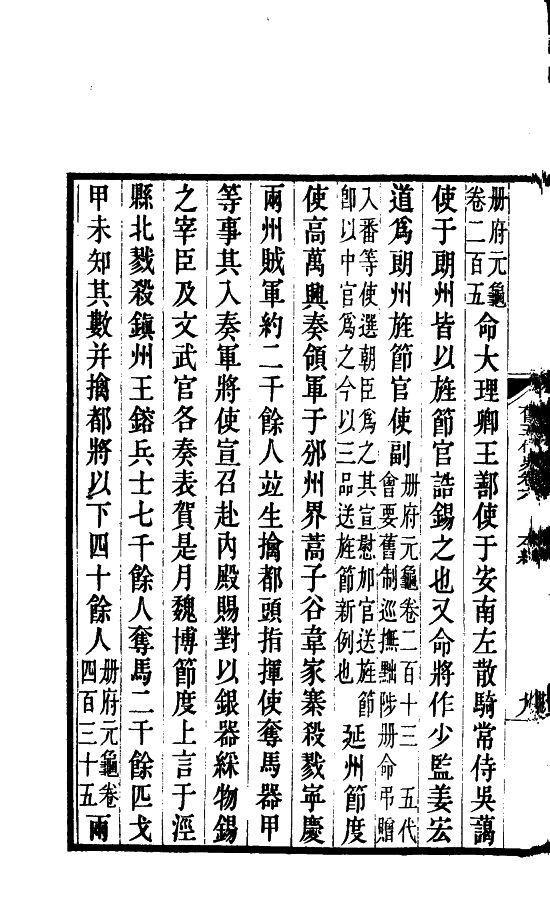 册府元龜卷二百五命大理卿王鄯使于安南左散騎常侍吳藹
使于朗州皆以旌節官誥錫之也又命將作少監姜宏
道爲朗州旌節官使副册府元龜卷二百十三 五代會要舊制巡撫黜陟册命弔贈
入番等使選朝臣爲之其宣慰加官送旌節卽以中官爲之今以三品送旌節新例也延州節度
使高萬興奏領軍于邠州界蒿子谷韋家寨殺戮寧慶
兩州賊軍約二千餘人竝生擒都頭指揮使奪馬器甲
等事其入奏軍將使宣召赴內殿賜對以銀器綵物錫
之宰臣及文武官各奏表賀是月魏博節度上言于涇
縣北戮殺鎭州王鎔兵士七千餘人奪馬二千餘匹戈
甲未知其數并擒都將以下四十餘人册府元龜卷四百三十五兩